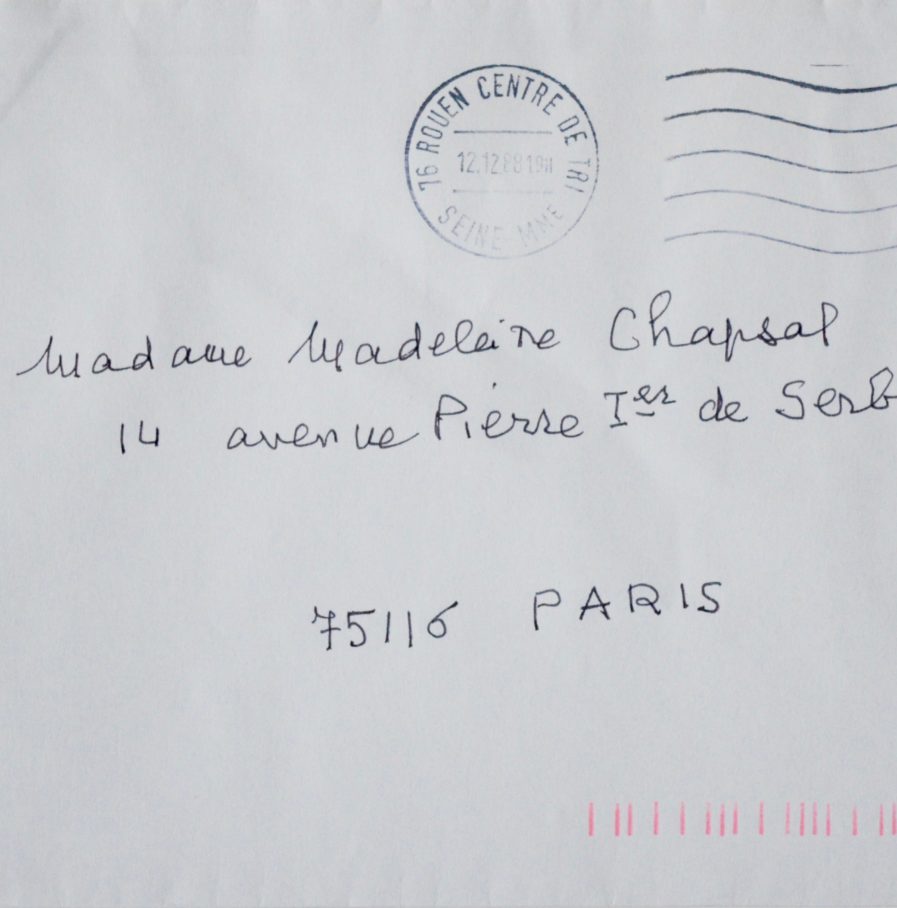 76 ROUEN CENTRE DE TRI
12.12.88 19H
SEINE MME
Madame Madeleine Chapsal
14 avenue Pierre Ier de Serb
75116 PARIS